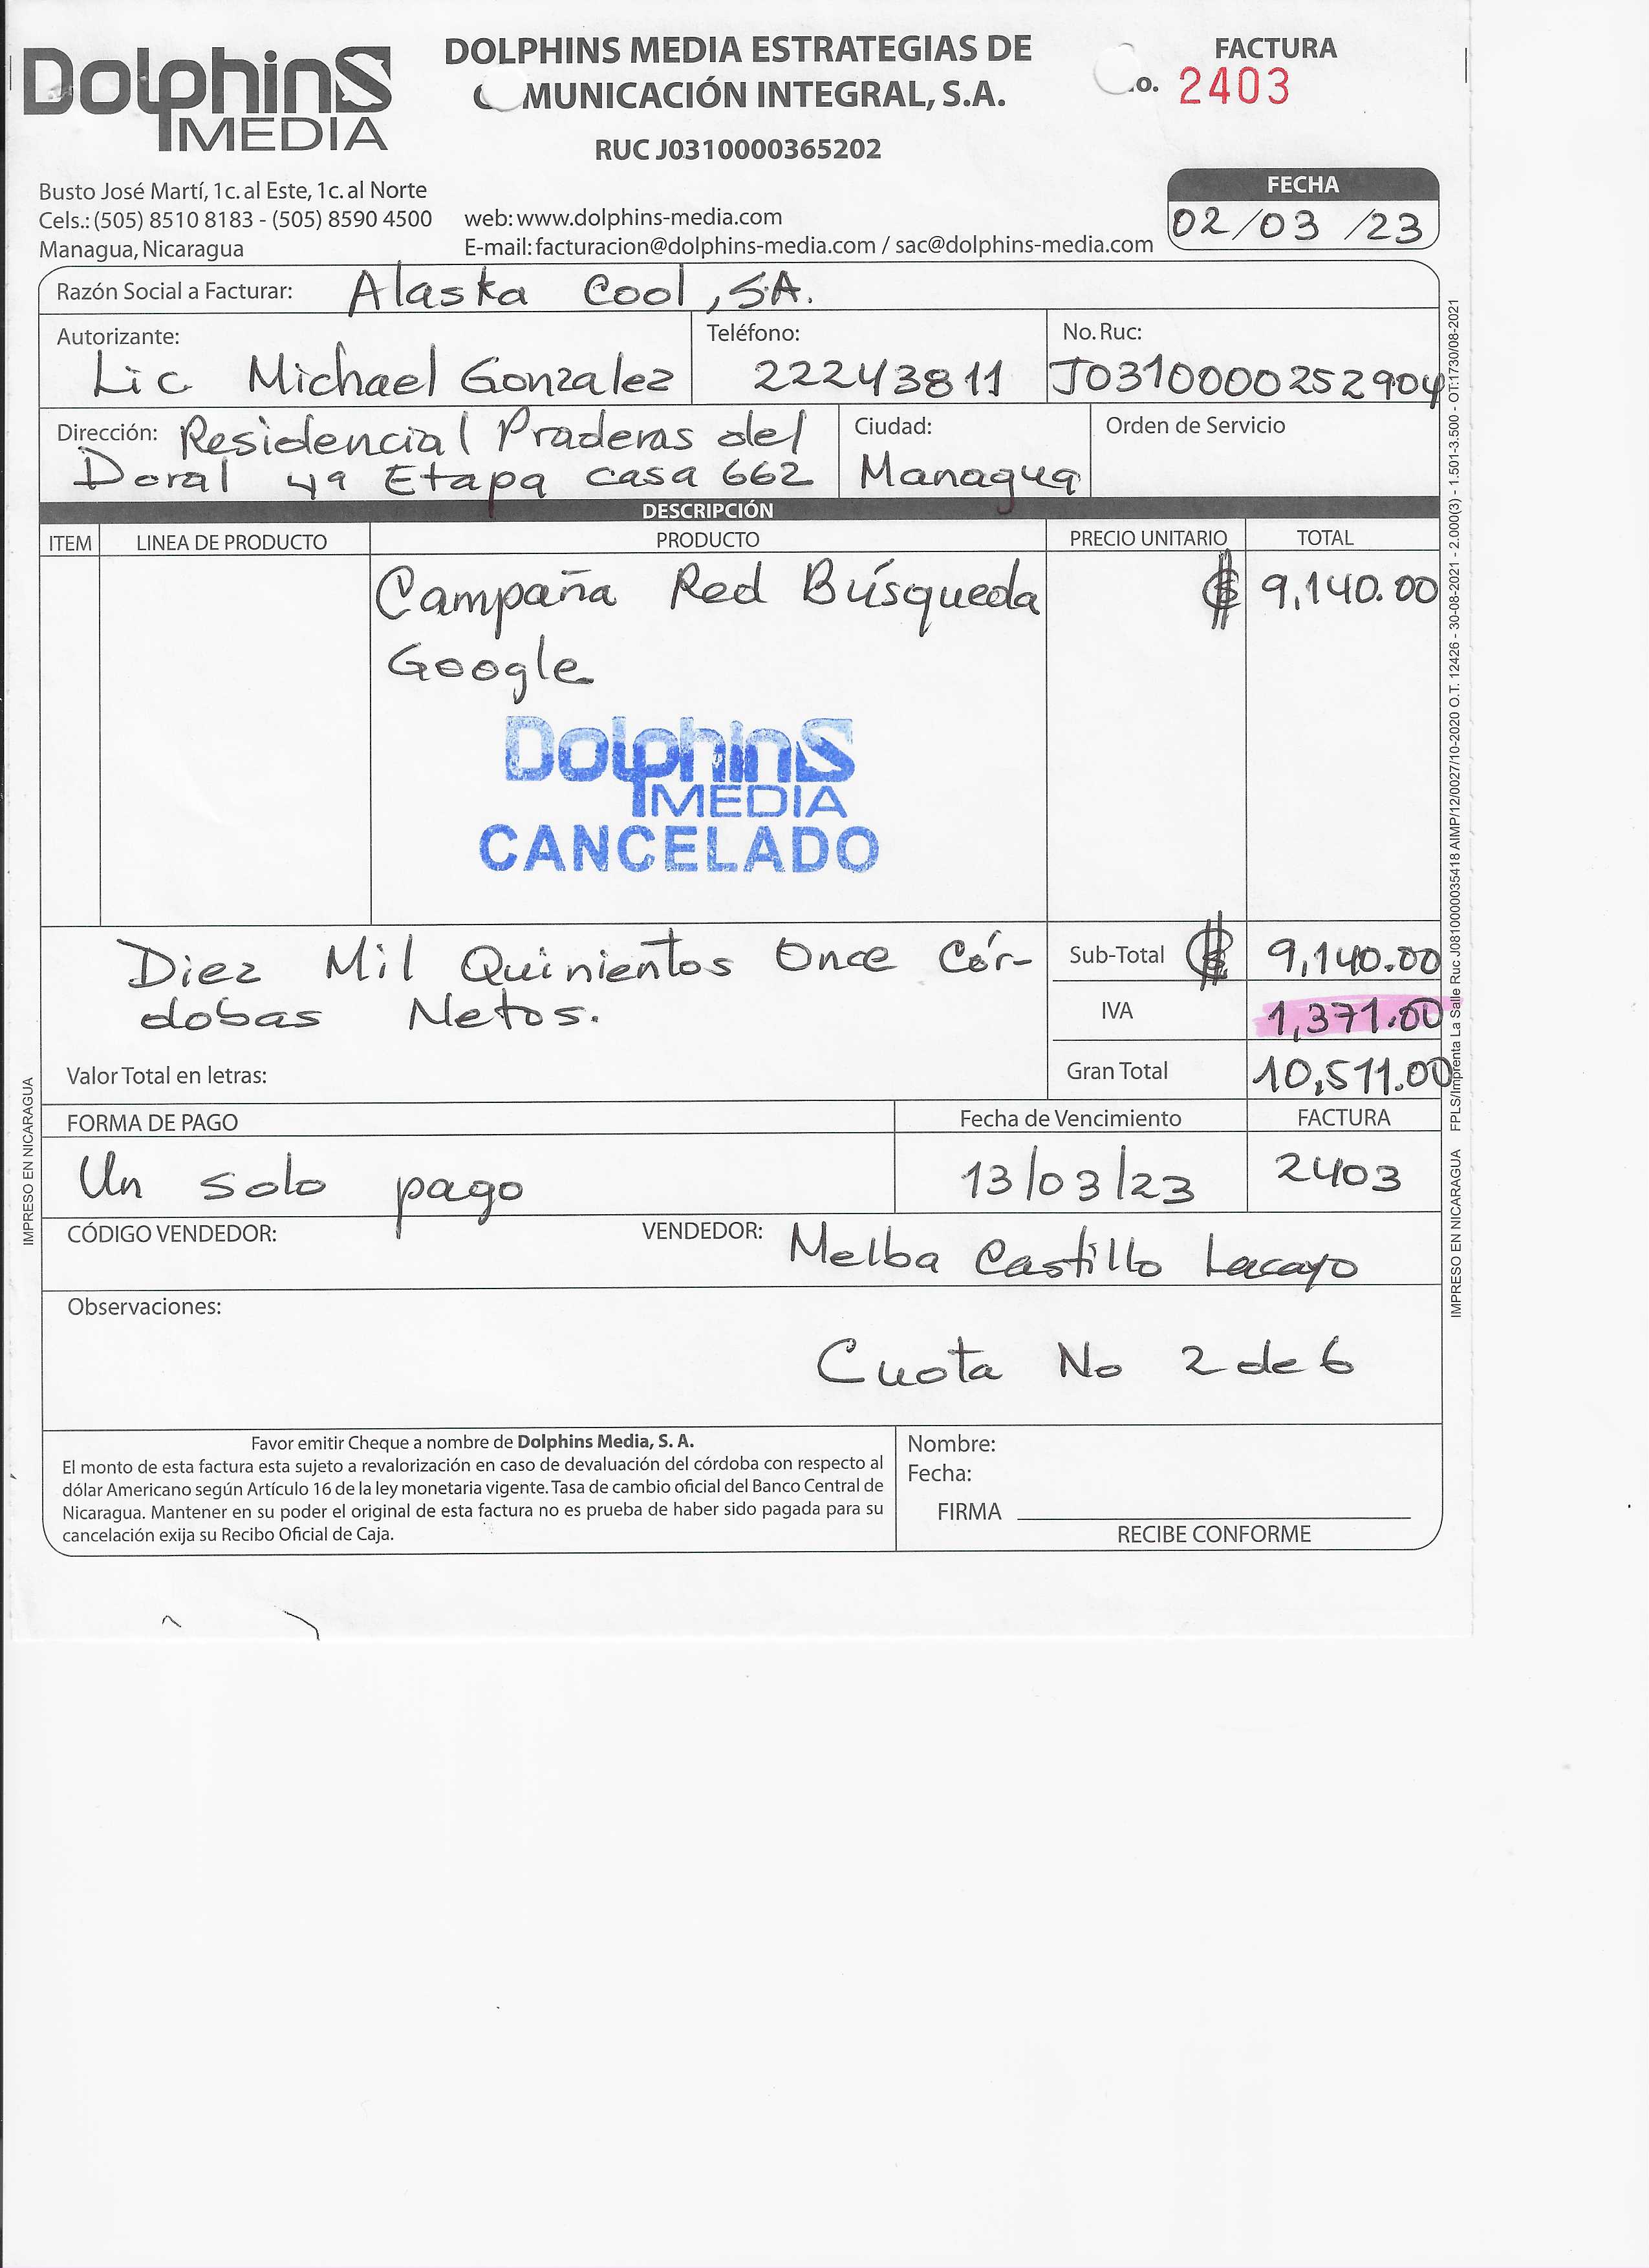 Dolphins
MEDIA
DOLPHINS MEDIA ESTRATEGIAS DE
MUNICACIÓN INTEGRAL, S.A.
RUC J0310000365202
FACTURA
o. 2403
Busto José Martí, 1c. al Este, 1c. al Norte
Cels.: (505) 8510 8183 - (505) 8590 4500
Managua, Nicaragua
web: www.dolphins-media.com
E-mail: facturacion@dolphins-media.com / sac@dolphins-media.com
FECHA
02/03/23
Razón Social a Facturar: Alaska Cool, S.A.
Autorizante: Teléfono: No. Ruc:
Lic Michael Gonzalez 22243811 J0310000252904
Dirección: Residencial Praderas del
Doral 4ª Etapa casa 662
Ciudad:
Managua
Orden de Servicio
DESCRIPCIÓN
ITEM LINEA DE PRODUCTO PRODUCTO PRECIO UNITARIO TOTAL
Campaña Red Búsqueda C$ 9,140.00
Google
Dolphins
MEDIA
CANCELADO
Diez Mil Quinientos Once Cór-
dobas Netos.
Valor Total en letras:
Sub-Total C$ 9,140.00
IVA 1,371.00
Gran Total 10,511.00
FORMA DE PAGO Fecha de Vencimiento FACTURA
Un solo pago 13/03/23 2403
CÓDIGO VENDEDOR: VENDEDOR: Melba Castillo Lacayo
Observaciones:
Cuota No 2 de 6
Favor emitir Cheque a nombre de Dolphins Media, S. A.
El monto de esta factura esta sujeto a revalorización en caso de devaluación del córdoba con respecto al
dólar Americano según Artículo 16 de la ley monetaria vigente. Tasa de cambio oficial del Banco Central de
Nicaragua. Mantener en su poder el original de esta factura no es prueba de haber sido pagada para su
cancelación exija su Recibo Oficial de Caja.
Nombre:
Fecha:
FIRMA
RECIBE CONFORME
IMPRESO EN NICARAGUA
IMPRESO EN NICARAGUA FPLS/Imprenta La Salle Ruc J0810000035418 AIMP/12/0027/10-2020 O.T. 12426 - 30-08-2021 - 2.000(3) - 1.501-3.500 - OT:1730/08-2021